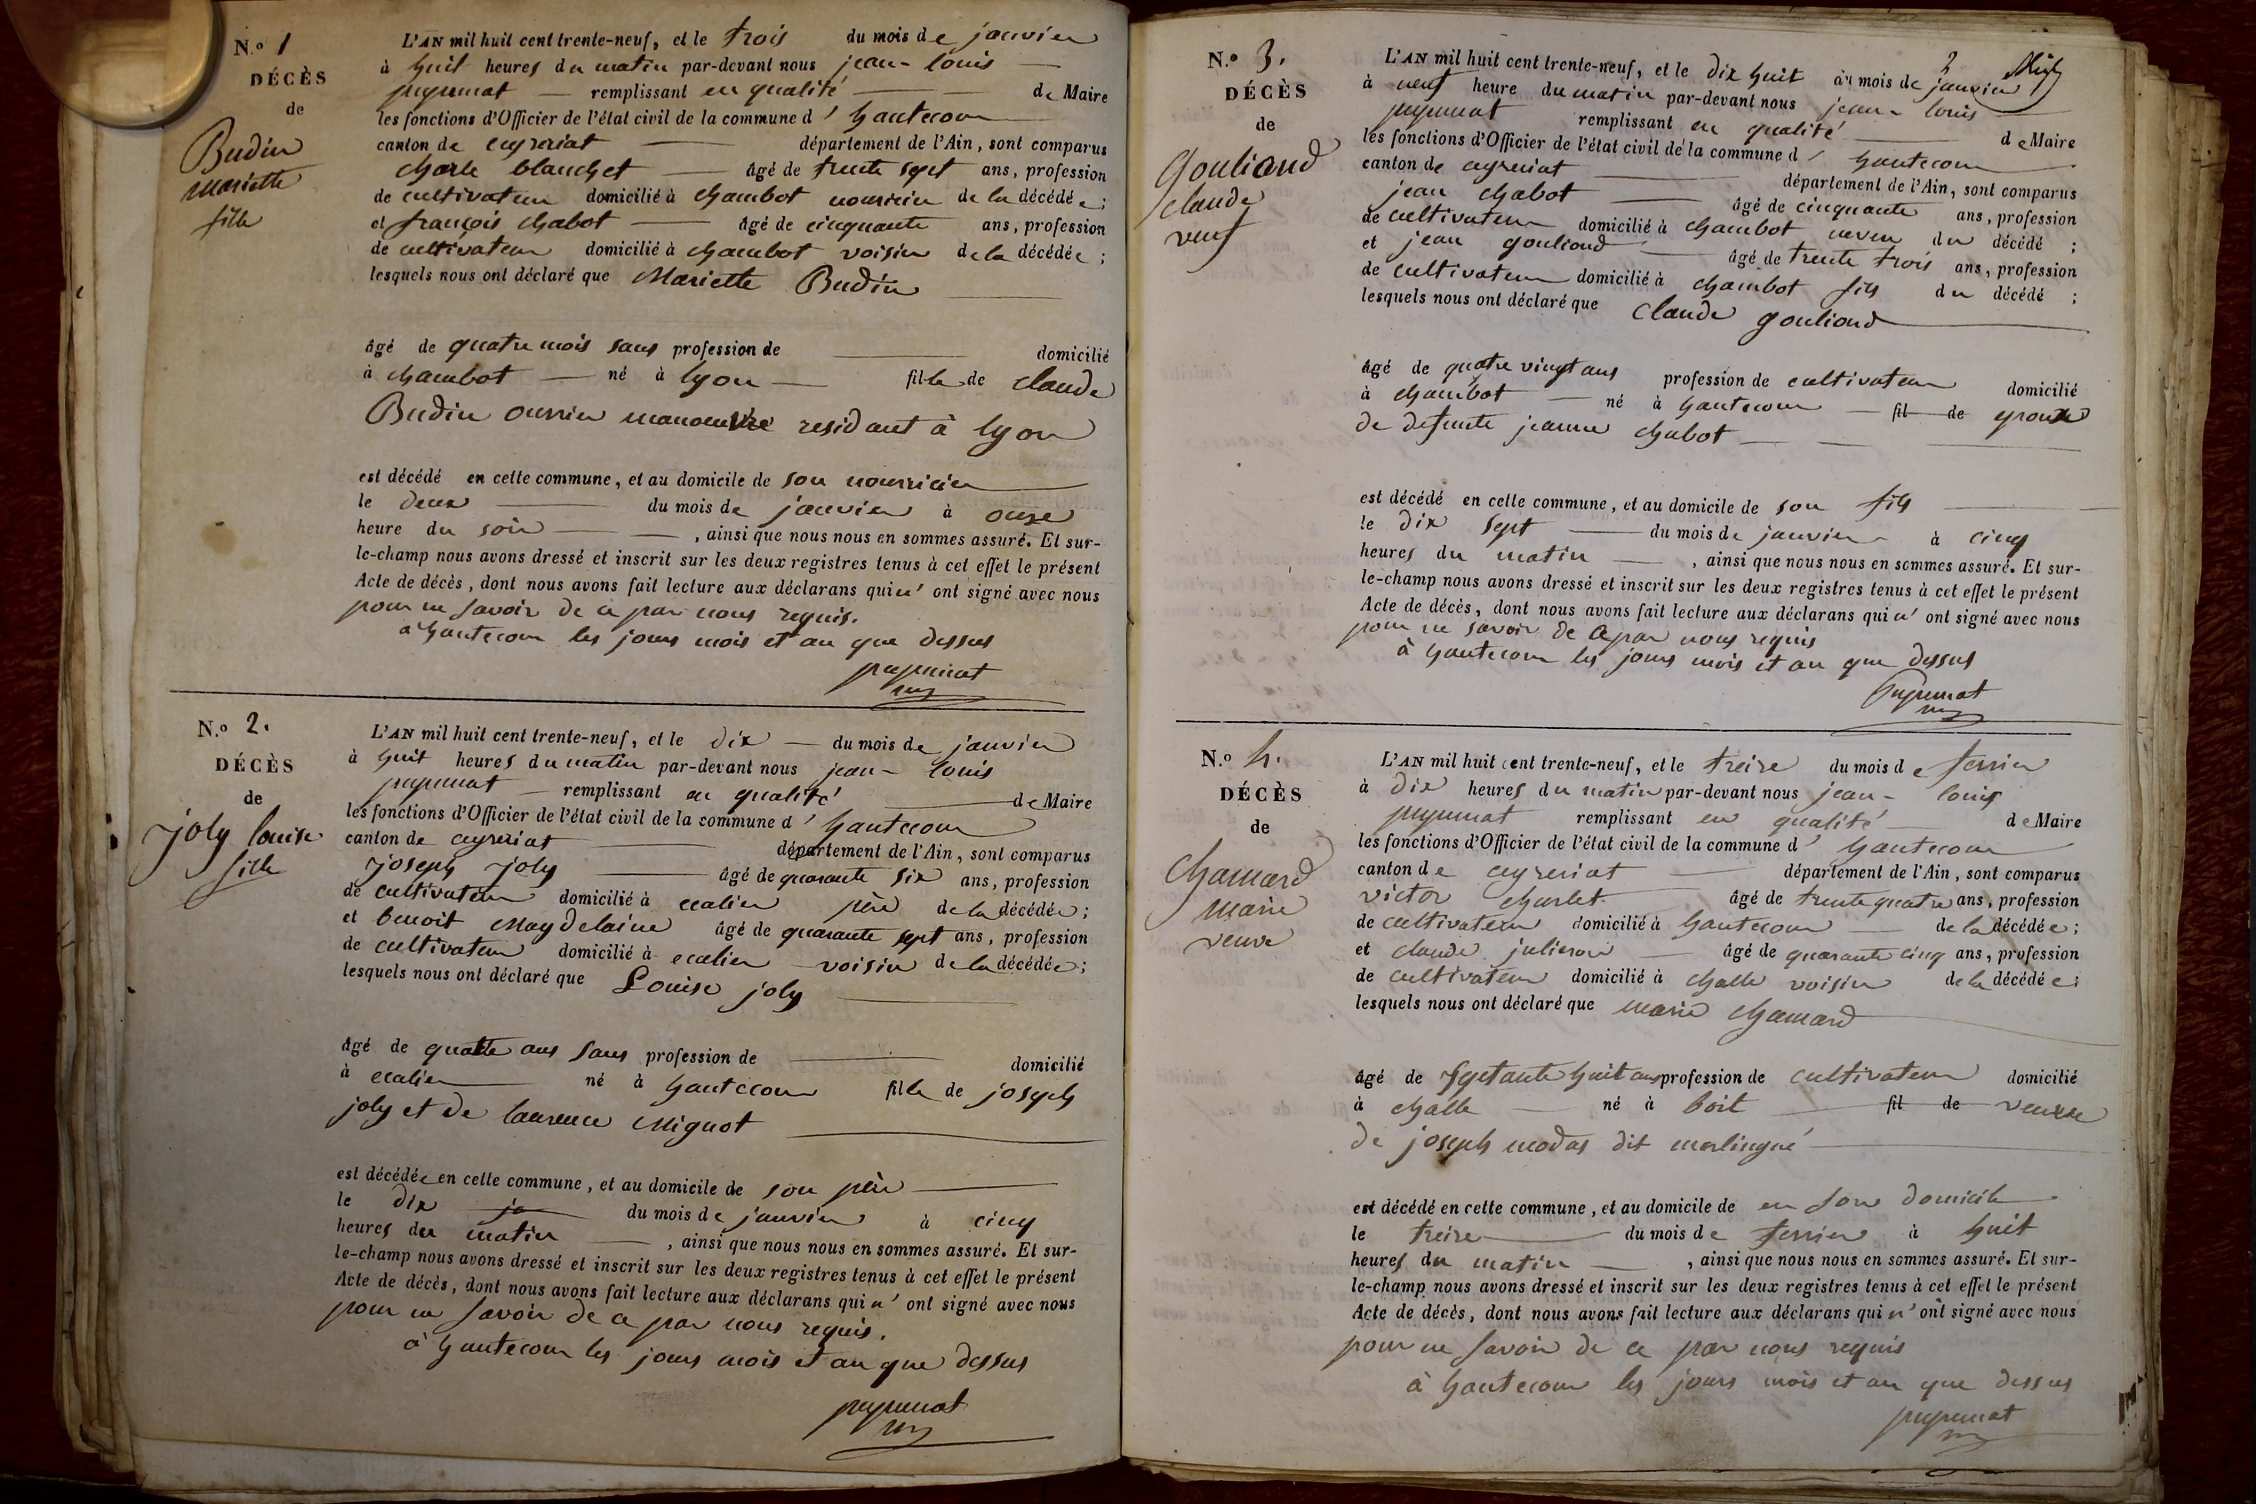 N.o 1
DÉCÈS
de
Budin
Mariette
fille
L'AN mil huit cent trente-neuf, et le trois du mois de janvier
à huit heures du matin par-devant nous jean-louis
puyumat remplissant en qualité de Maire
les fonctions d'Officier de l'état civil de la commune d'hautecour
canton de ceyzeriat département de l'Ain, sont comparus
charle blanchet âgé de trente sept ans, profession
de cultivateur domicilié à chambot nouricier de la décédée;
et françois chabot âgé de cinquante ans, profession
de cultivateur domicilié à chambot voisin de la décédée;
lesquels nous ont déclaré que Mariette Budin
âgé de quatre mois sans profession de domicilié
à chambot né à lyon fille de claude
Budin ouvrier manoeuvre residant à lyon
est décédé en cette commune, et au domicile de son nourricier
le deux du mois de janvier à onze
heure du soir, ainsi que nous nous en sommes assuré. Et sur-
le-champ nous avons dressé et inscrit sur les deux registres tenus à cet effet le présent
Acte de décès, dont nous avons fait lecture aux déclarans qui n'ont signé avec nous
pour ne savoir de ce par nous requis.
à hautecour les jours mois et an que dessus
puyumat
N.o 2.
DÉCÈS
de
joly louise
fille
L'AN mil huit cent trente-neuf, et le dix du mois de janvier
à huit heures du matin par-devant nous jean-louis
puyumat remplissant en qualité de Maire
les fonctions d'Officier de l'état civil de la commune d'hautecour
canton de ceyzeriat département de l'Ain, sont comparus
joseph joly âgé de quarante six ans, profession
de cultivateur domicilié à ecalier père de la décédée;
et benoit Maydelaine âgé de quarante sept ans, profession
de cultivateur domicilié à ecalier voisin de la décédée;
lesquels nous ont déclaré que Louise joly
âgé de quatre ans sans profession de domicilié
à ecalier né à hautecour fille de joseph
joly et de laurence Mignot
est décédée en cette commune, et au domicile de son père
le dix du mois de janvier à cinq
heures du matin, ainsi que nous nous en sommes assuré. Et sur-
le-champ nous avons dressé et inscrit sur les deux registres tenus à cet effet le présent
Acte de décès, dont nous avons fait lecture aux déclarans qui n'ont signé avec nous
pour ne savoir de ce par nous requis.
à hautecour les jours mois et an que dessus
puyumat
N.o 3.
DÉCÈS
de
gouliand
claude
veuf
2
L'AN mil huit cent trente-neuf, et le dix huit du mois de janvier
à neuf heure du matin par-devant nous jean-louis
puyumat remplissant en qualité de Maire
les fonctions d'Officier de l'état civil de la commune d'hautecour
canton de ceyzeriat département de l'Ain, sont comparus
jean chabot âgé de cinquante ans, profession
de cultivateur domicilié à chambot neveu du décédé;
et jean gouliond âgé de trente trois ans, profession
de cultivateur domicilié à chambot fils du décédé;
lesquels nous ont déclaré que claude gouliond
âgé de quatre vingt ans profession de cultivateur domicilié
à chambot né à hautecour fil de epoux
de defunte jeanne chabot
est décédé en cette commune, et au domicile de son fils
le dix sept du mois de janvier à cinq
heures du matin, ainsi que nous nous en sommes assuré. Et sur-
le-champ nous avons dressé et inscrit sur les deux registres tenus à cet effet le présent
Acte de décès, dont nous avons fait lecture aux déclarans qui n'ont signé avec nous
pour ne savoir de ce par nous requis
à hautecour les jours mois et an que dessus
Puyumat
N.o 4.
DÉCÈS
de
chamard
marie
veuve
L'AN mil huit cent trente-neuf, et le treize du mois de ferrier
à dix heures du matin par-devant nous jean-louis
puyumat remplissant en qualité de Maire
les fonctions d'Officier de l'état civil de la commune d'hautecour
canton de ceyzeriat département de l'Ain, sont comparus
victor charlet âgé de trente quatre ans, profession
de cultivateur domicilié à hautecour de la décédée;
et claude julieron âgé de quarante cinq ans, profession
de cultivateur domicilié à challe voisin de la décédée;
lesquels nous ont déclaré que marie chamard
âgé de septante huit ans profession de cultivateur domicilié
à challe né à boit fil de veuve
de joseph modas dit merlingué
est décédé en cette commune, et au domicile de en son domicile
le treize du mois de ferrier à huit
heures du matin, ainsi que nous nous en sommes assuré. Et sur-
le-champ nous avons dressé et inscrit sur les deux registres tenus à cet effet le présent
Acte de décès, dont nous avons fait lecture aux déclarans qui n'ont signé avec nous
pour ne savoir de ce par nous requis
à hautecour les jours mois et an que dessus
puyumat